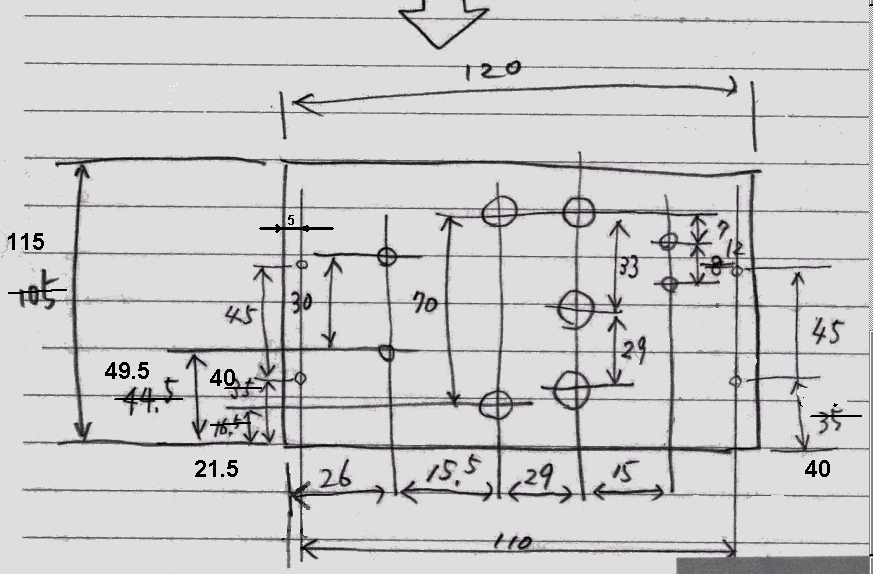 120
115
105
5
7
12
8
33
45
30
70
45
49.5
44.5
40
35
29
16.5
35
21.5
40
26
15.5
29
15
110